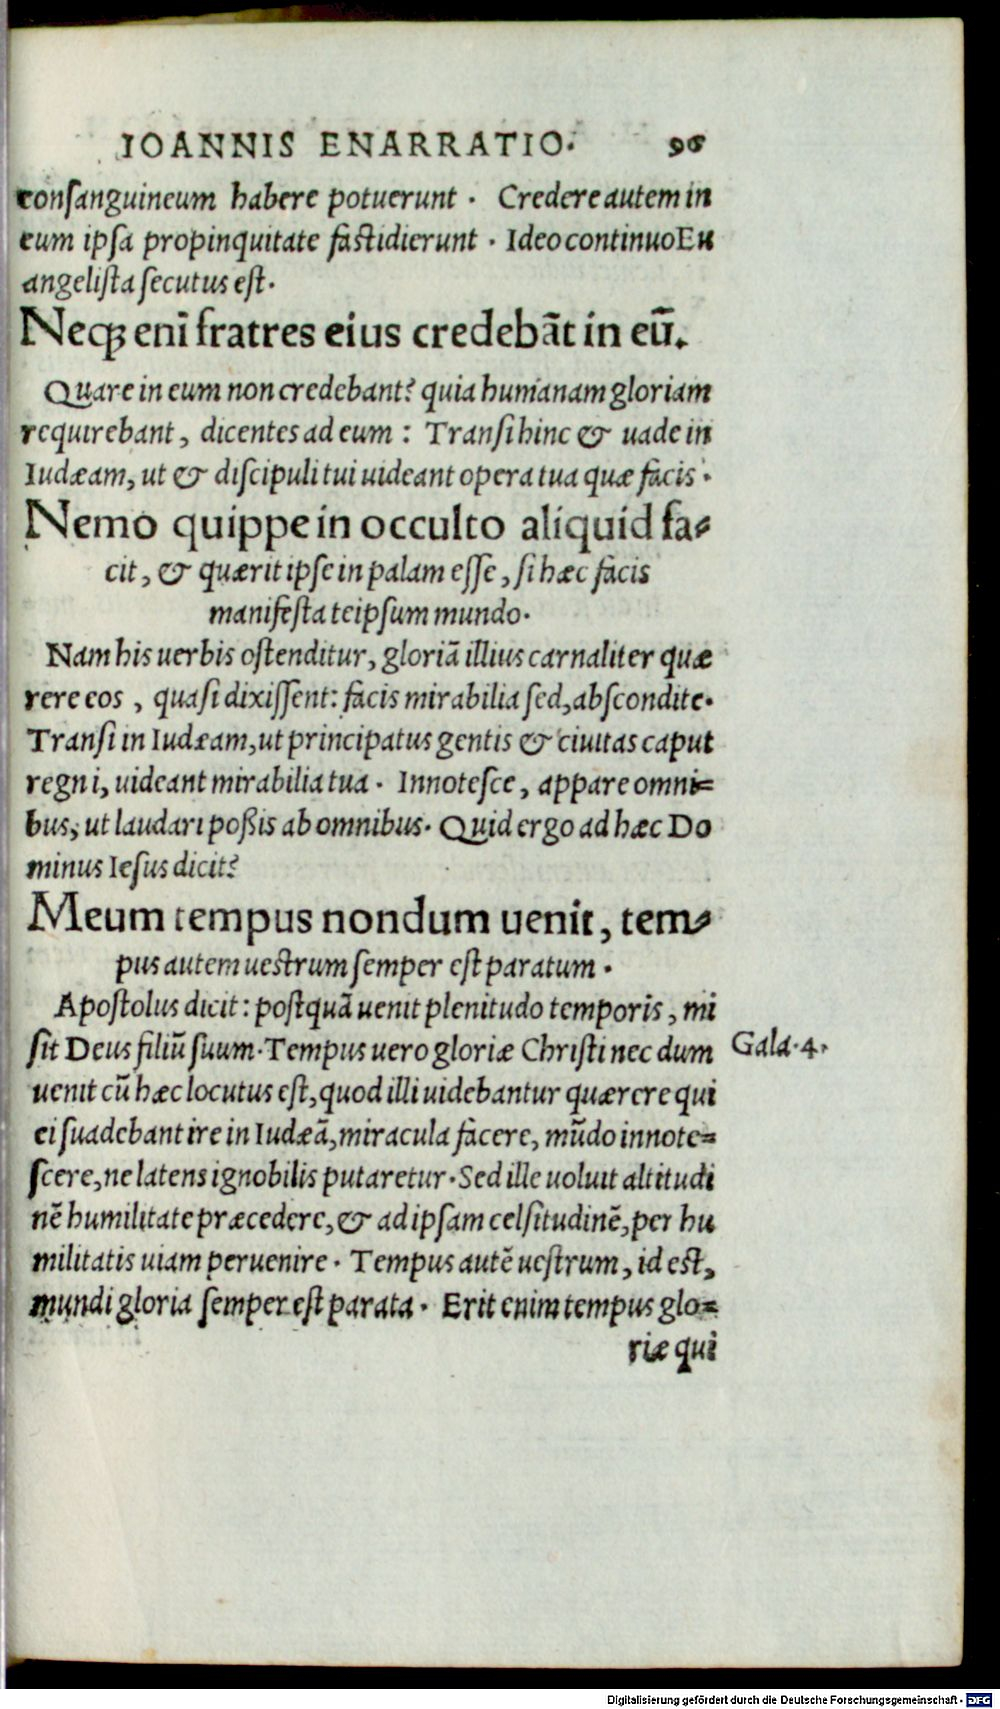 IOANNIS ENARRATIO. 96
conſanguineum habere potuerunt. Credere autem in
eum ipſa propinquitate faſtidierunt. Ideo continuo Eu
angeliſta ſecutus eſt.
Neqꝫ enī fratres eius credebāt in eū.
Quare in eum non credebant? quia humanam gloriam
requirebant, dicentes ad eum: Tranſi hinc & uade in
Iudæam, ut & diſcipuli tui uideant opera tua quæ facis.
Nemo quippe in occulto aliquid fa-
cit, & quærit ipſe in palam eſſe, ſi hæc facis
manifeſta teipſum mundo.
Nam his uerbis oſtenditur, gloriā illius carnaliter quæ
rere eos, quaſi dixiſſent: facis mirabilia ſed, abſcondite.
Tranſi in Iudæam, ut principatus gentis & ciuitas caput
regni, uideant mirabilia tua. Innoteſce, appare omni=
bus, ut laudari poßis ab omnibus. Quid ergo ad hæc Do
minus Ieſus dicit?
Meum tempus nondum uenit, tem-
pus autem ueſtrum ſemper eſt paratum.
Apoſtolus dicit: poſtquā uenit plenitudo temporis, mi
ſit Deus filiū ſuum. Tempus uero gloriæ Chriſti nec dum
Gala. 4.
uenit cū hæc locutus eſt, quod illi uidebantur quærere qui
ei ſuadebant ire in Iudæā, miracula facere, mūdo innote=
ſcere, ne latens ignobilis putaretur. Sed ille uoluit altitudi
nē humilitate præcedere, & ad ipſam celſitudinē, per hu
militatis uiam peruenire. Tempus autē ueſtrum, id eſt,
mundi gloria ſemper eſt parata. Erit enim tempus glo=
riæ qui
Digitalisierung gefördert durch die Deutsche Forschungsgemeinschaft - DFG